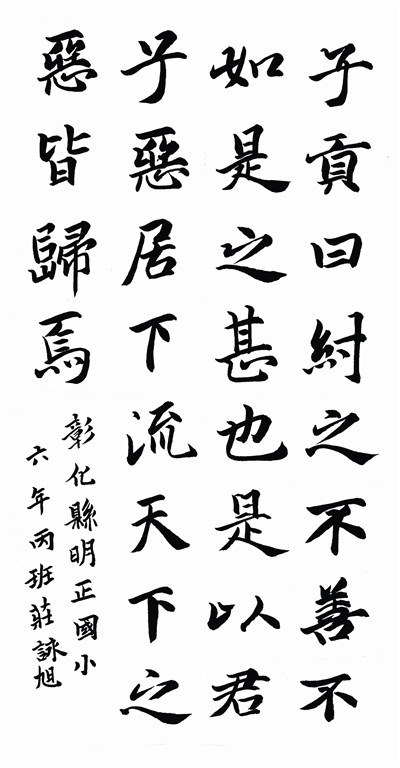 子貢曰紂之不善不
如是之甚也是以君
子惡居下流天下之
惡皆歸焉
彰化縣明正國小
六年丙班莊詠旭